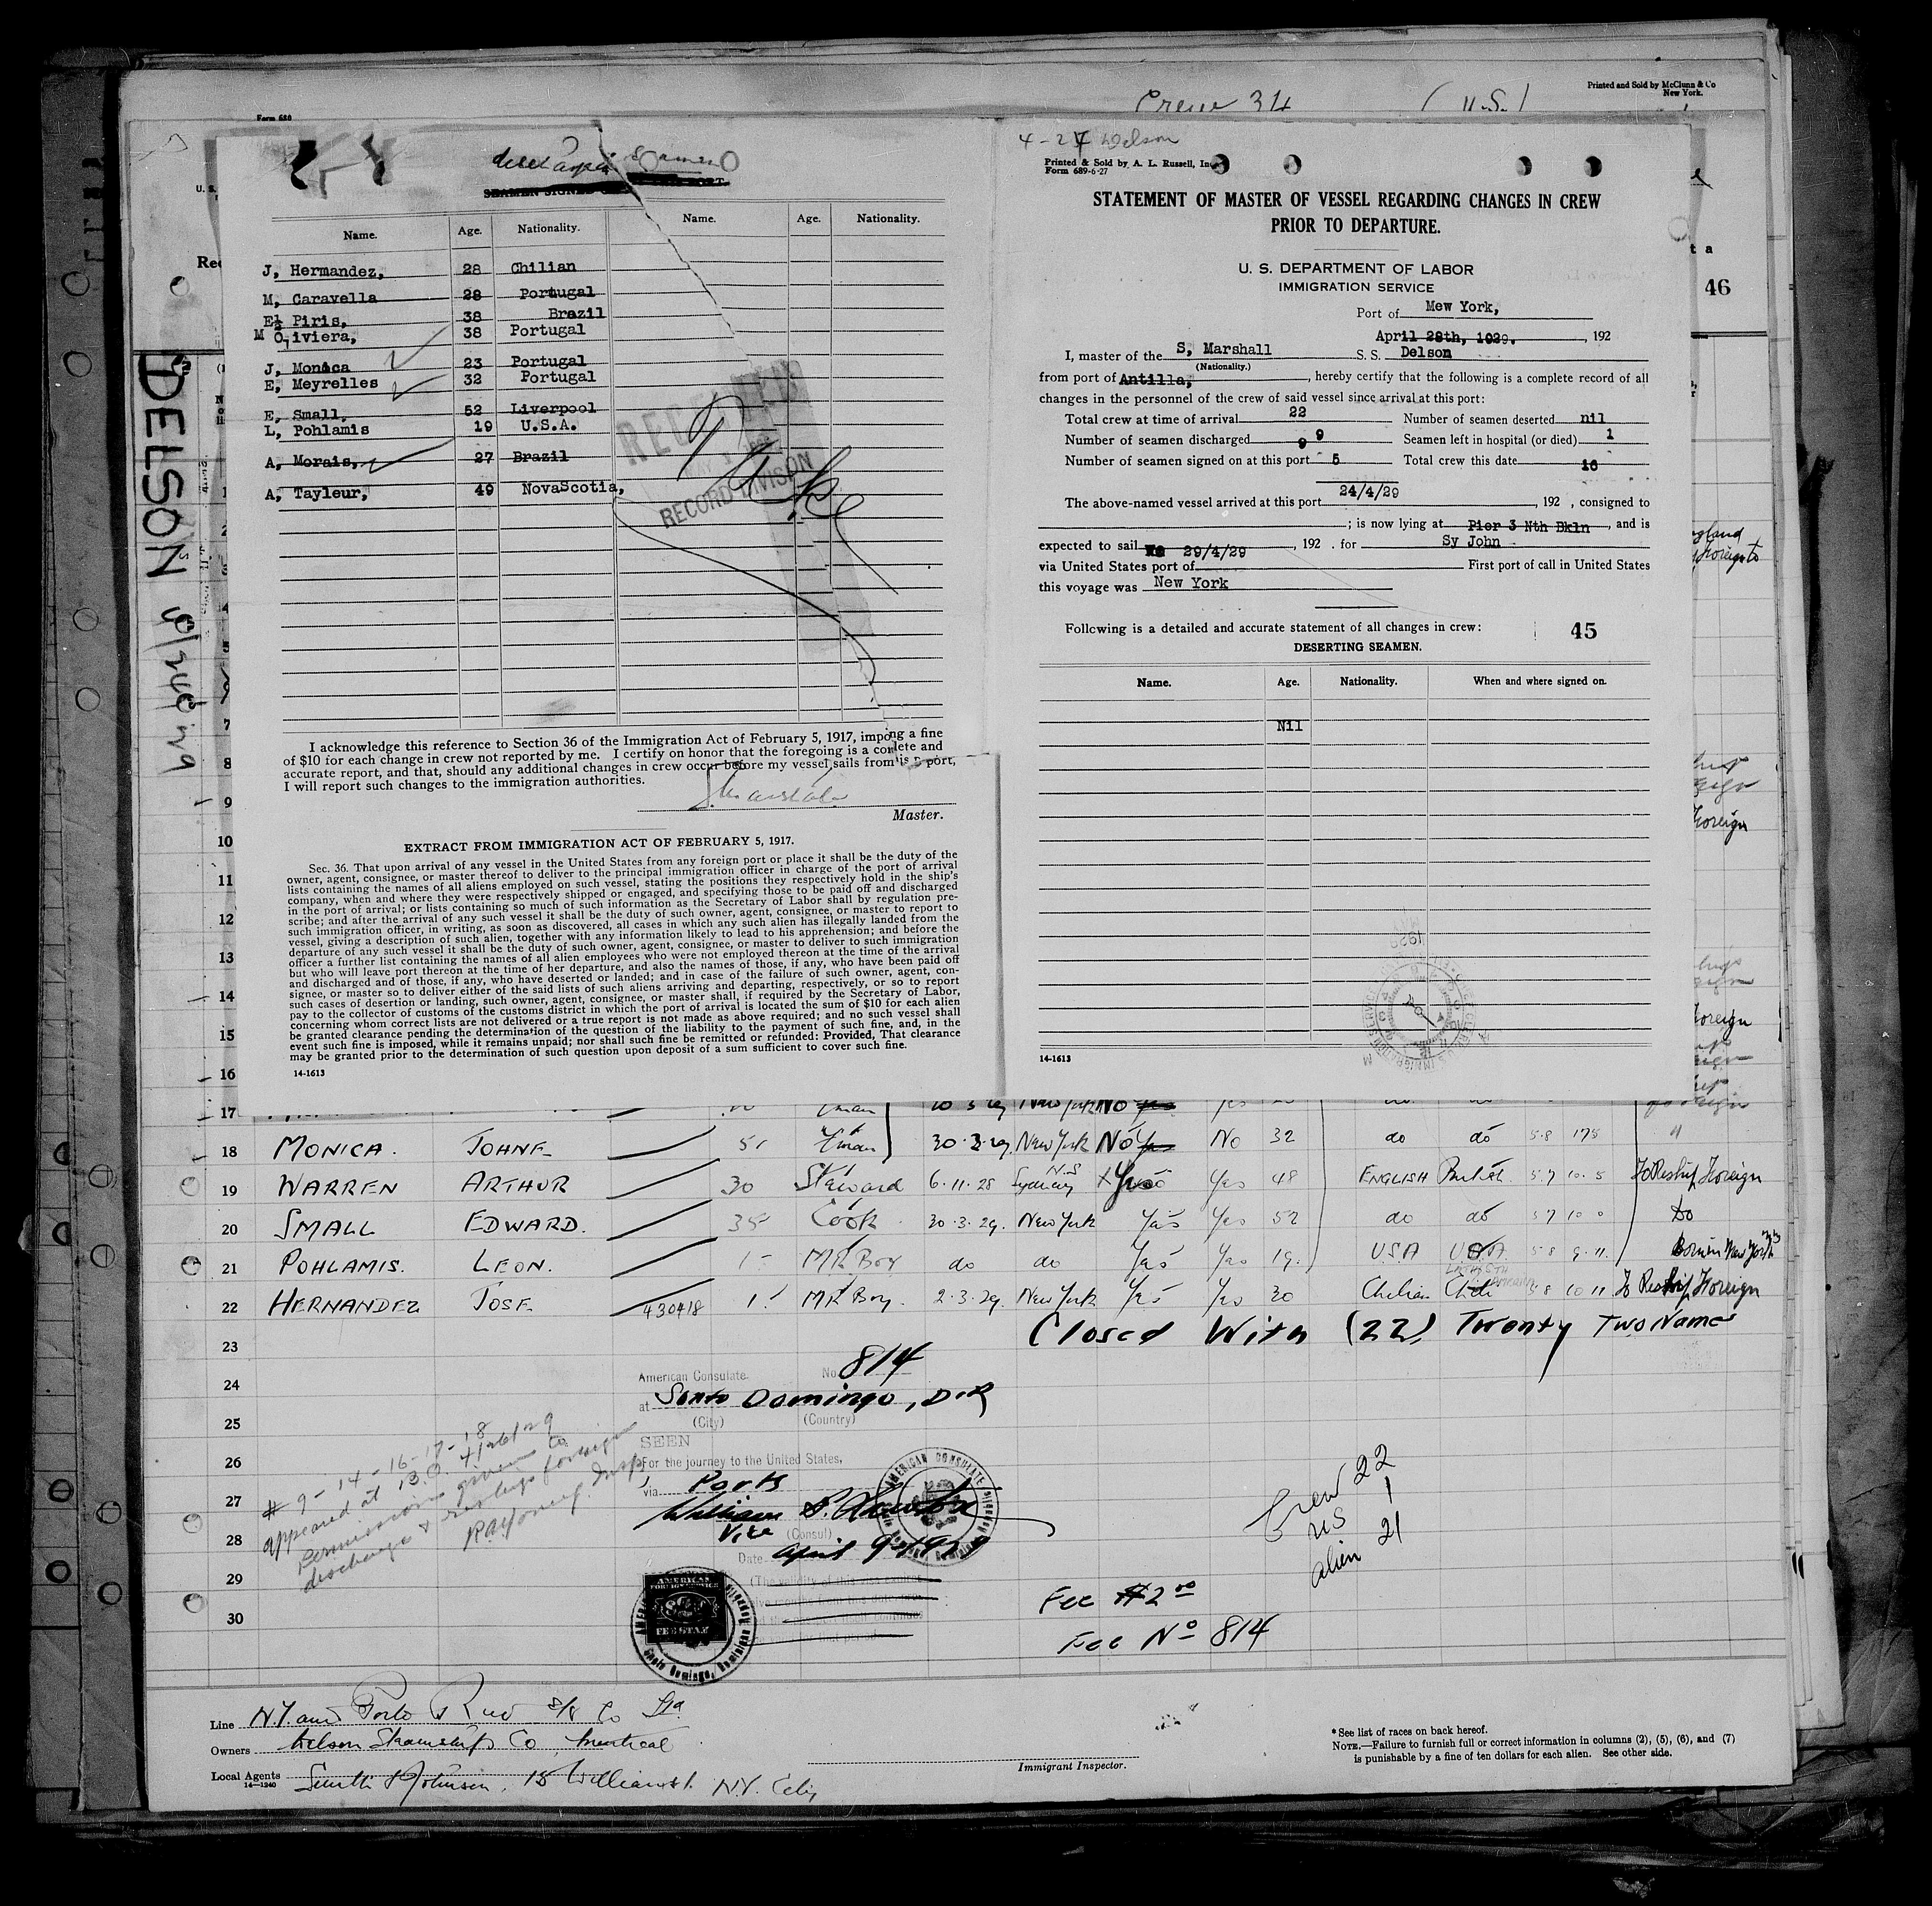 Printed and Sold by McClunn & Co
New York.
Crew 34 (U.S.)
Form 680
46
DELSON
Seamen
SEAMEN SIGNED
Name. Age. Nationality. Name. Age. Nationality.
J, Hermandez, 28 Chilian
M, Caravella 28 Portugal
Piris, 38 Brazil
M O,iviera, 38 Portugal
J, Monica 23 Portugal
E, Meyrelles 32 Portugal
E, Small, 52 Liverpool
L, Pohlamis 19 U.S.A.
A, Morais, 27 Brazil
A, Tayleur, 49 NovaScotia,
RECEIVED
RECORD DIVISION
I acknowledge this reference to Section 36 of the Immigration Act of February 5, 1917, impo ng a fine
of $10 for each change in crew not reported by me. I certify on honor that the foregoing is a com lete and
accurate report, and that, should any additional changes in crew occur before my vessel sails from is port,
I will report such changes to the immigration authorities.
S. Marshall
Master.
EXTRACT FROM IMMIGRATION ACT OF FEBRUARY 5, 1917.
Sec. 36. That upon arrival of any vessel in the United States from any foreign port or place it shall be the duty of the
owner, agent, consignee, or master thereof to deliver to the principal immigration officer in charge of the port of arrival
lists containing the names of all aliens employed on such vessel, stating the positions they respectively hold in the ship's
company, when and where they were respectively shipped or engaged, and specifying those to be paid off and discharged
in the port of arrival; or lists containing so much of such information as the Secretary of Labor shall by regulation pre-
scribe; and after the arrival of any such vessel it shall be the duty of such owner, agent, consignee, or master to report to
such immigration officer, in writing, as soon as discovered, all cases in which any such alien has illegally landed from the
vessel, giving a description of such alien, together with any information likely to lead to his apprehension; and before the
departure of any such vessel it shall be the duty of such owner, agent, consignee, or master to deliver to such immigration
officer a further list containing the names of all alien employees who were not employed thereon at the time of the arrival
but who will leave port thereon at the time of her departure, and also the names of those, if any, who have been paid off
and discharged and of those, if any, who have deserted or landed; and in case of the failure of such owner, agent, con-
signee, or master so to deliver either of the said lists of such aliens arriving and departing, respectively, or so to report
such cases of desertion or landing, such owner, agent, consignee, or master shall, if required by the Secretary of Labor,
pay to the collector of customs of the customs district in which the port of arrival is located the sum of $10 for each alien
concerning whom correct lists are not delivered or a true report is not made as above required; and no such vessel shall
be granted clearance pending the determination of the question of the liability to the payment of such fine, and, in the
event such fine is imposed, while it remains unpaid; nor shall such fine be remitted or refunded: Provided, That clearance
may be granted prior to the determination of such question upon deposit of a sum sufficient to cover such fine.
14-1613
Delson
Printed & Sold by A. L. Russell, Inc
Form 689-6-27
STATEMENT OF MASTER OF VESSEL REGARDING CHANGES IN CREW
PRIOR TO DEPARTURE.
U. S. DEPARTMENT OF LABOR
IMMIGRATION SERVICE
Port of Mew York,
April 28th, 1929. , 192
I, master of the S, Marshall S. S. Delson
(Nationality.)
from port of Antilla, , hereby certify that the following is a complete record of all
changes in the personnel of the crew of said vessel since arrival at this port:
Total crew at time of arrival 22 Number of seamen deserted nil
Number of seamen discharged 9 9 Seamen left in hospital (or died) 1
Number of seamen signed on at this port 5 Total crew this date 16
The above-named vessel arrived at this port 24/4/29 , 192 , consigned to
; is now lying at Pier 3 Nth Bkln , and is
expected to sail 29/4/29 , 192 . for Sy John
via United States port of First port of call in United States
this voyage was New York
Following is a detailed and accurate statement of all changes in crew: 45
DESERTING SEAMEN.
Name. Age. Nationality. When and where signed on.
Nil
14-1613
7
8
9
10
11
12
13
14
15
16
17
18 MONICA. JOHNE 5 Fman 30.3.29. New York No Yes No 32 do do 5.8 175
19 WARREN ARTHUR 30 Steward 6.11.28 Sydney N.S Yes Yes 48 ENGLISH British 5.7 10.5 To Reship Foreign
20 SMALL EDWARD. 35 Cook 30.3.29. New York Yes Yes 52 do do 5 7 10 0 Do
21 POHLAMIS. LEON. 1 Boy do do Yes Yes 19. USA USA 5 8 9.11. Born in New York
22 HERNANDEZ JOSE 430418 1 Boy. 2.3.29. New York Yes Yes 30 Chelian Chili 5 8 10 11 To Reship Foreign
23 Closed With (22) Twenty Two Names
24
25
26
27
28
29
30
American Consulate. No 814
at Santo Domingo, D.R
(City) (Country)
SEEN
For the journey to the United States,
via Ports
William
Vice (Consul)
Date April 9 1929
(The validity of this visa expires
# 9 - 14 - 16 - 17 - 18
appeared at B.O. 4/26/29
permission given to
discharge & reship foreign
Insp
AMERICAN CONSULATE
AMERICAN
FOREIGN SERVICE
$2
FEE STAMP
Santo Domingo, Dominican Republic
Crew 22
US 1
alien 21
Fee $2 00
Fee No 814
Line N.Y. and Porto Rico S/S Co
Owners Delson Steamship Co, Montreal
Local Agents Smith & Johnson, 15 William St. N.Y. City
14-1240
Immigrant Inspector.
*See list of races on back hereof.
NOTE.—Failure to furnish full or correct information in columns (2), (5), (6), and (7)
is punishable by a fine of ten dollars for each alien. See other side.